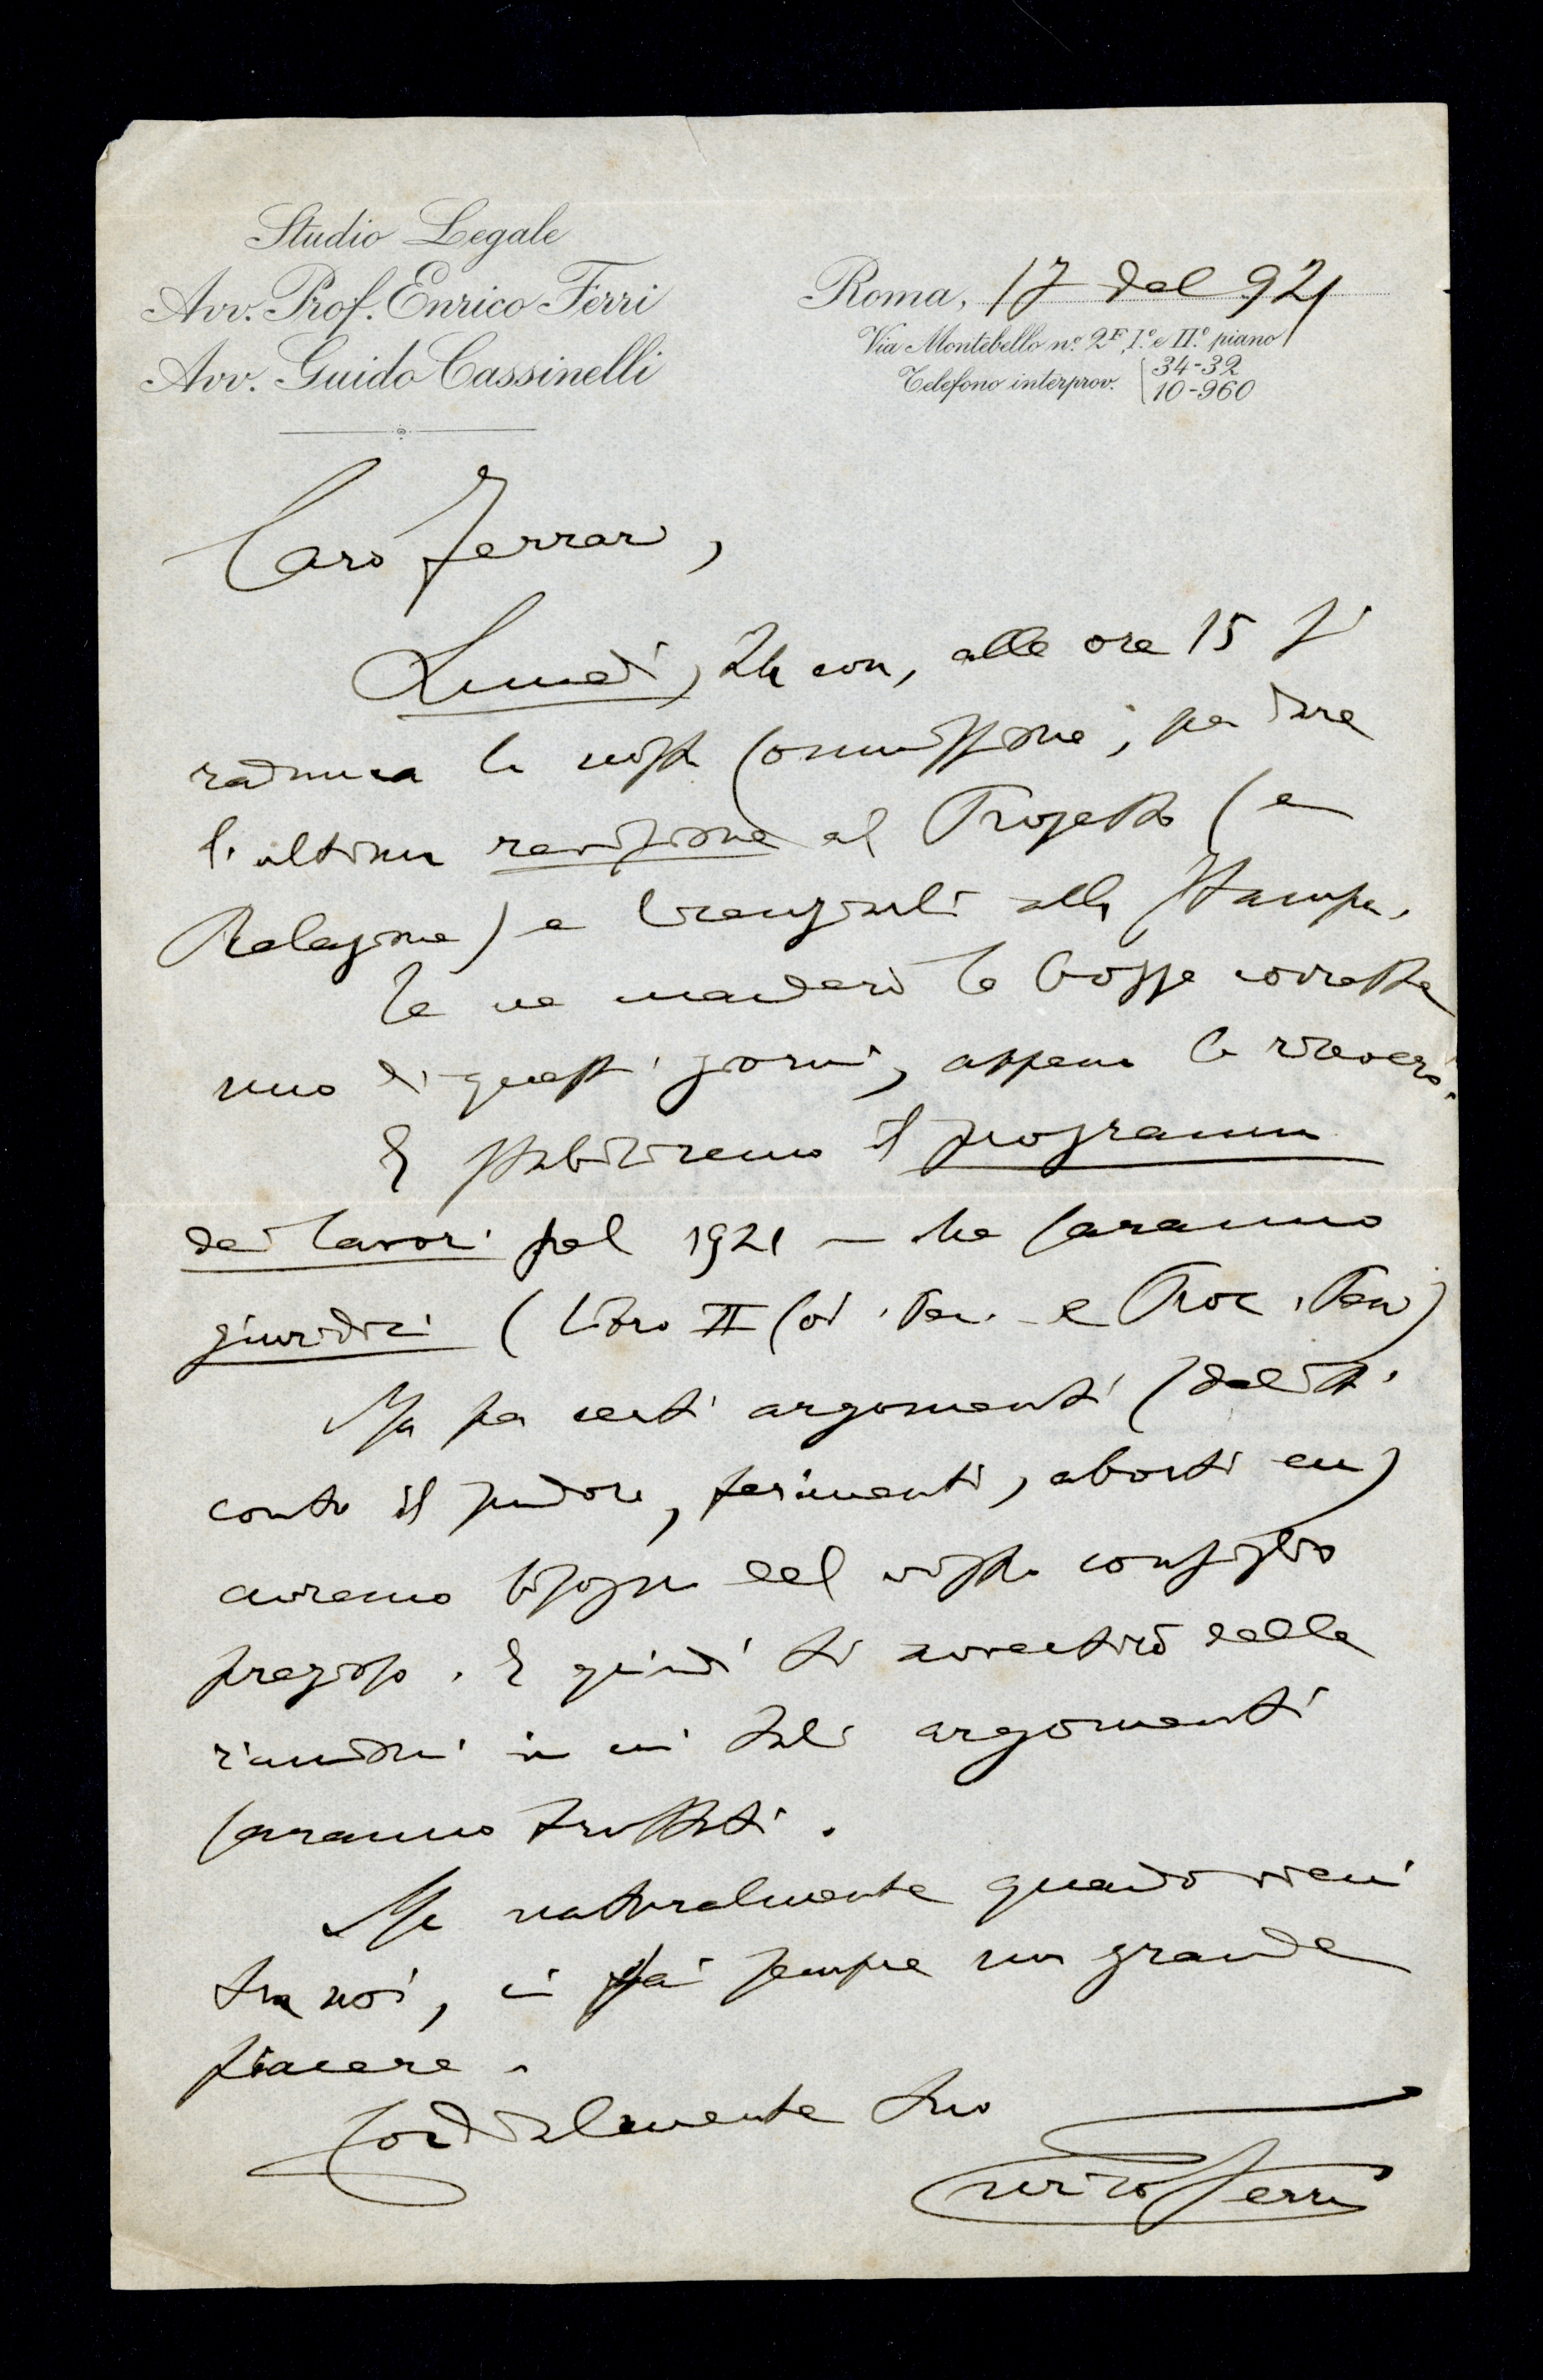 Studio Legale
Avv. Prof. Enrico Ferri
Avv. Guido Cassinelli
Roma, 17 del 921
Via Montebello nº. 2F, Iº. e IIº. piano
Telefono interprov. 34-32
10-960
Caro Ferrari,
Lunedì, 24 corr, alle ore 15 si
raduna la nostra Commissione, per dare
l'ultima revisione al Progetto (e
Relazione) e licenziarli alla stampa.
Te ne manderò le bozze corrette
uno di questi giorni, appena le riceverò.
E stabiliremo il programma
dei lavori pel 1921 — che saranno
giuridici (libro II Cod. Pen. e Proc. Pen)
Ma per certi argomenti (delitti
contro il pudore, ferimenti, aborti ecc)
avremo bisogno del vostro consiglio
prezioso. E quindi ti avvertirò delle
riunioni in cui tali argomenti
saranno trattati.
Ma naturalmente quando vieni
tra noi, ci fai sempre un grande
piacere.
Cordialmente tuo
Enrico Ferri